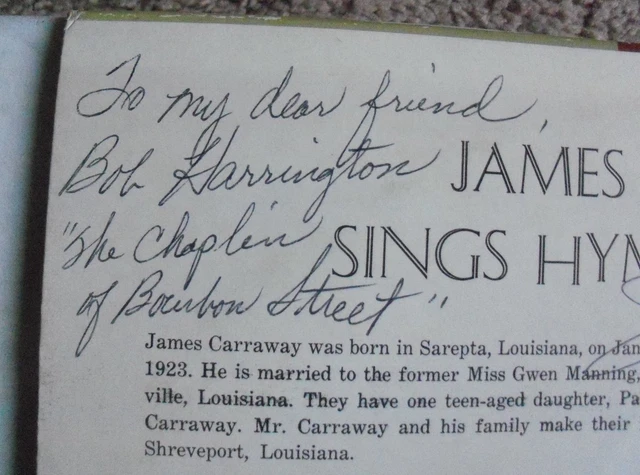 To my dear friend,
Bob Harrington
"The Chaplin
of Bourbon Street"
JAMES
SINGS HYM
James Carraway was born in Sarepta, Louisiana, on Jan
1923. He is married to the former Miss Gwen Manning,
ville, Louisiana. They have one teen-aged daughter, Pa
Carraway. Mr. Carraway and his family make their
Shreveport, Louisiana.